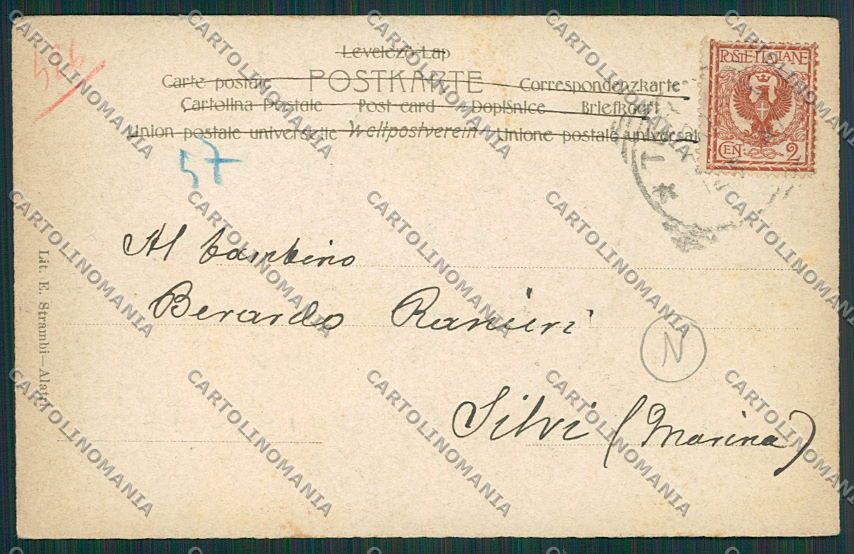 526
Levelező-Lap
Carte postale POSTKARTE Correspondenzkarte
Cartolina Postale Post card Dopisnice Briefkaart
Union postale universelle Weltpostverein Unione postale universale
57
POSTE ITALIANE
CEN. 2
Al bambino
Berardo Ranieri
N
Silvi (Marina)
Lit. E. Strambi—Alatri
CARTOLINOMANIA